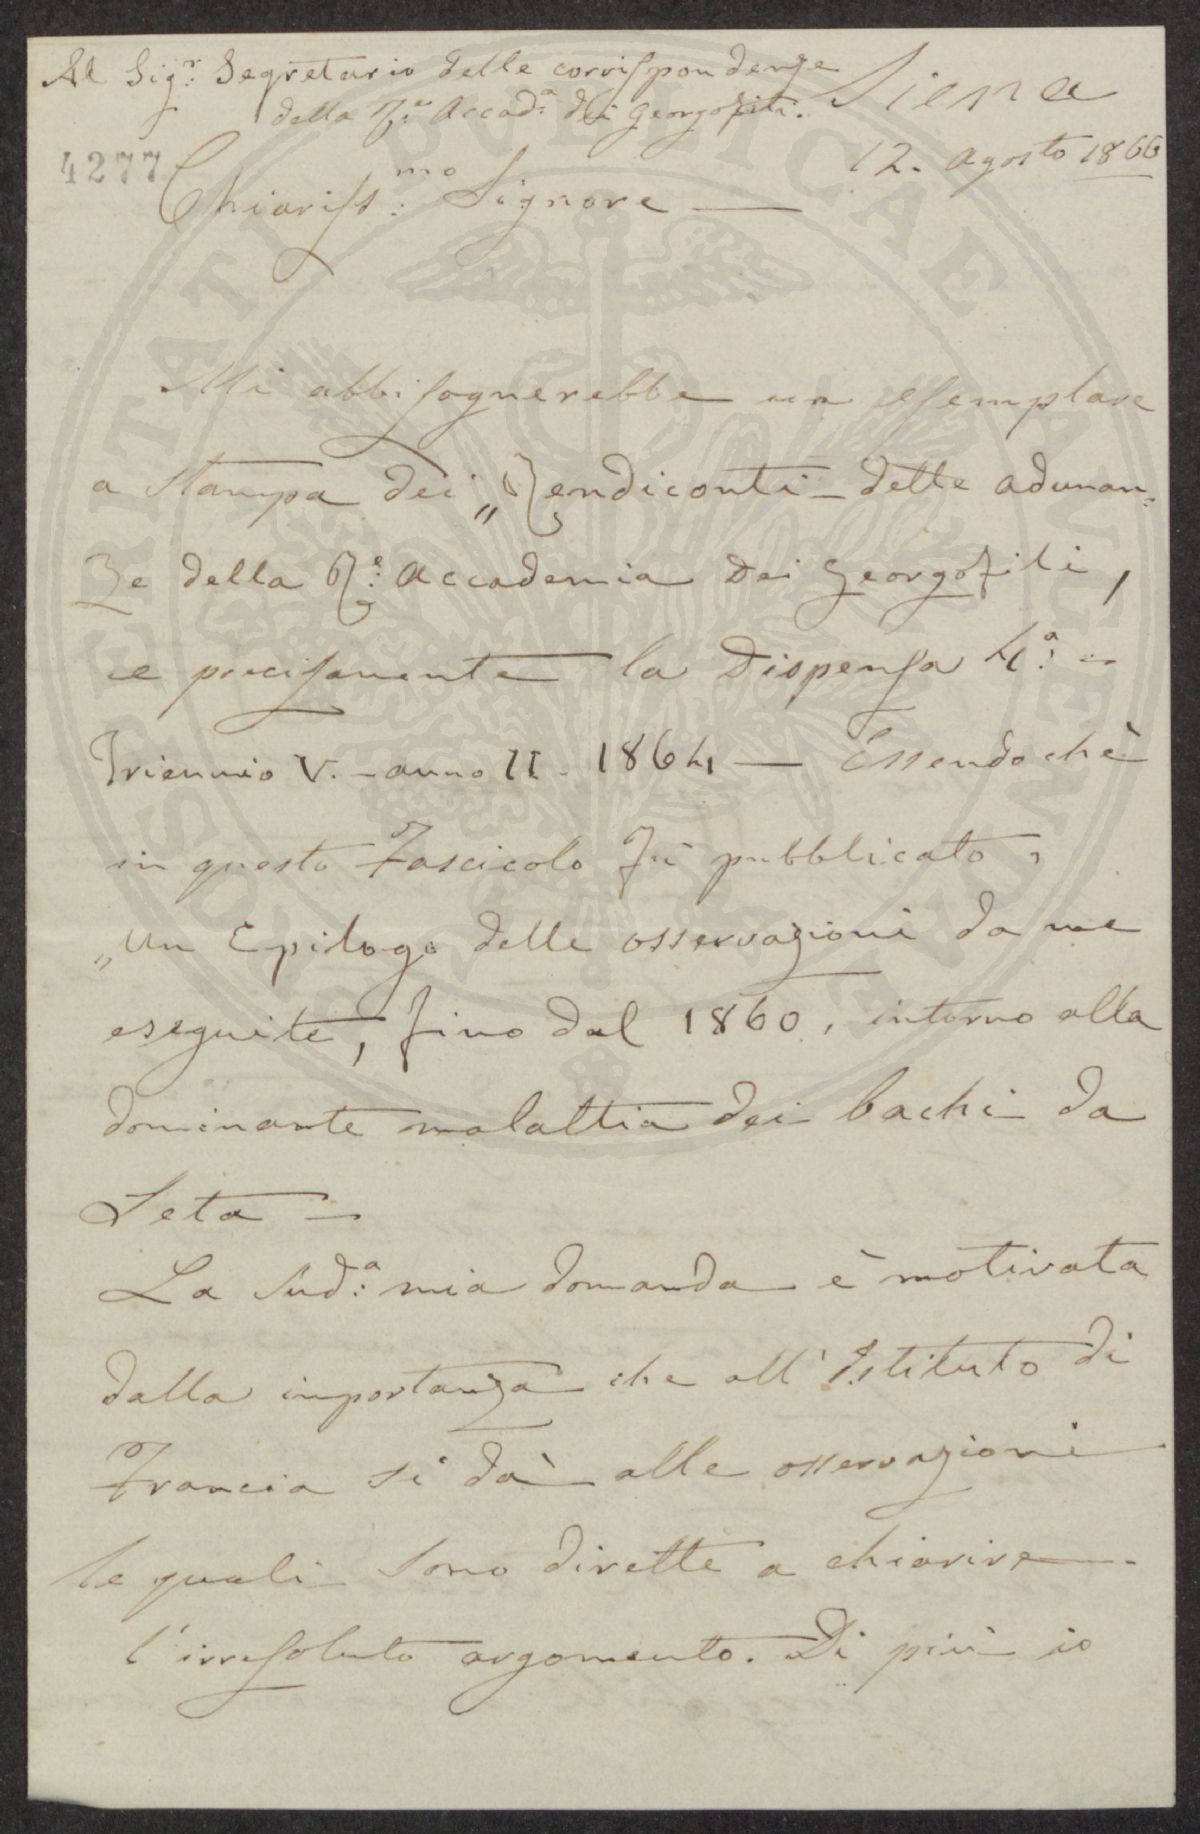 Al Sig.r Segretario delle corrispondenze
della R.a Accad.a dei Georgofili.
Siena
12. Agosto 1866
4277
Chiariss.mo Signore —
Mi abbisognerebbe un esemplare
a stampa dei „Rendiconti – delle adunan=
ze della R.e Accademia dei Georgofili,
e precisamente la Dispensa 4.a –
Triennio V. – anno II – 1864 — Essendochè
in questo Fascicolo fù pubblicato,
„Un Epilogo delle osservazioni da me
eseguite, fino dal 1860, intorno alla
dominante malattia dei bachi da
Seta –
La Sud.a mia domanda è motivata
dalla inportanza che all'Istituto di
Francia si dà alle osservazioni
le quali sono dirette a chiarire
l'irresoluto argomento. Di più io
PROSPERITATI PUBLICAE AUGENDAE